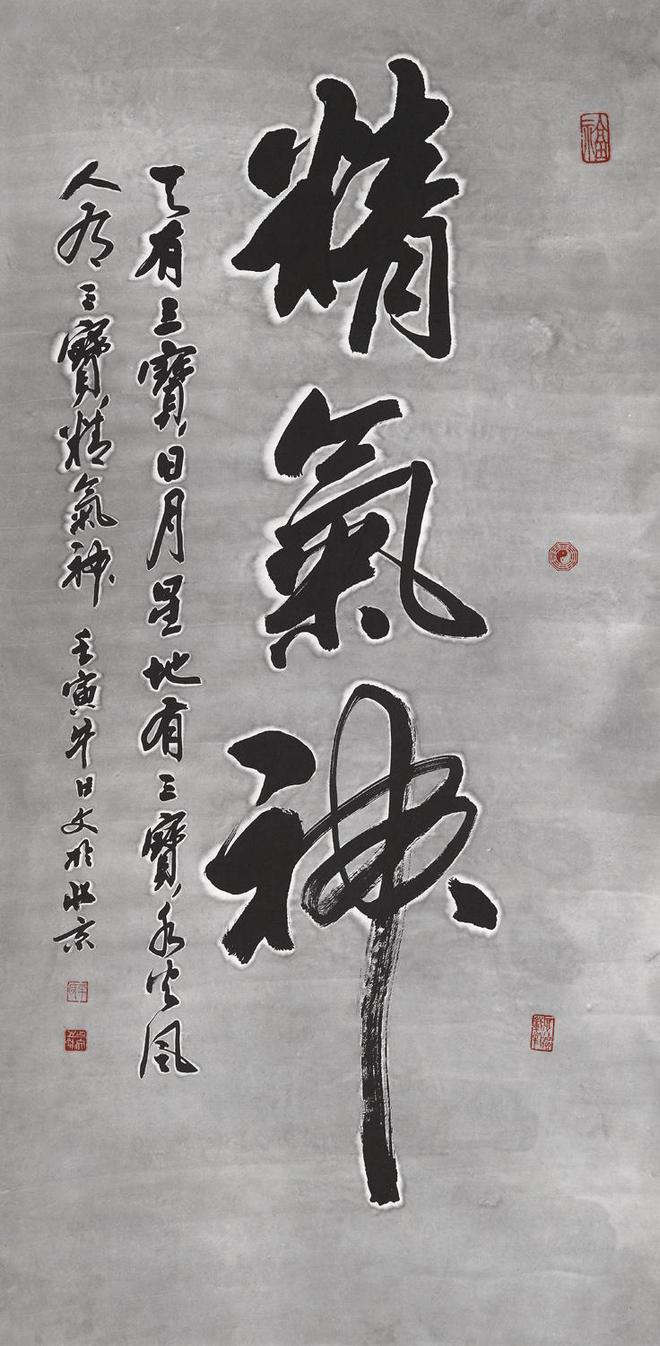 精氣神
天有三寶日月星地有三寶水火風
人有三寶精氣神 壬寅年日文於北京